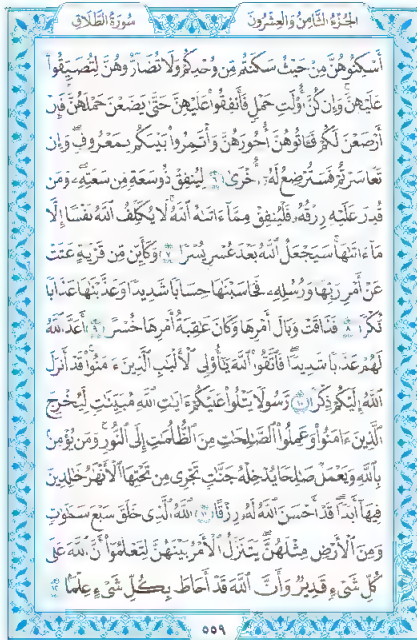 الجزء الثامن والعشرون
سورة الطلاق
أَسْكِنُوهُنَّ مِنْ حَيْثُ سَكَنتُم مِّن وُجْدِكُمْ وَلَا تُضَآرُّوهُنَّ لِتُضَيِّقُوا۟
عَلَيْهِنَّ ۚ وَإِن كُنَّ أُو۟لَٰتِ حَمْلٍ فَأَنفِقُوا۟ عَلَيْهِنَّ حَتَّىٰ يَضَعْنَ حَمْلَهُنَّ ۚ فَإِنْ
أَرْضَعْنَ لَكُمْ فَـَٔاتُوهُنَّ أُجُورَهُنَّ ۖ وَأْتَمِرُوا۟ بَيْنَكُم بِمَعْرُوفٍ ۖ وَإِن
تَعَاسَرْتُمْ فَسَتُرْضِعُ لَهُۥٓ أُخْرَىٰ ﴿٦﴾ لِيُنفِقْ ذُو سَعَةٍ مِّن سَعَتِهِۦ ۖ وَمَن
قُدِرَ عَلَيْهِ رِزْقُهُۥ فَلْيُنفِقْ مِمَّآ ءَاتَىٰهُ ٱللَّهُ ۚ لَا يُكَلِّفُ ٱللَّهُ نَفْسًا إِلَّا
مَآ ءَاتَىٰهَا ۚ سَيَجْعَلُ ٱللَّهُ بَعْدَ عُسْرٍ يُسْرًا ﴿٧﴾ وَكَأَيِّن مِّن قَرْيَةٍ عَتَتْ
عَنْ أَمْرِ رَبِّهَا وَرُسُلِهِۦ فَحَاسَبْنَٰهَا حِسَابًا شَدِيدًا وَعَذَّبْنَٰهَا عَذَابًا
نُّكْرًا ﴿٨﴾ فَذَاقَتْ وَبَالَ أَمْرِهَا وَكَانَ عَٰقِبَةُ أَمْرِهَا خُسْرًا ﴿٩﴾ أَعَدَّ ٱللَّهُ
لَهُمْ عَذَابًا شَدِيدًا ۖ فَٱتَّقُوا۟ ٱللَّهَ يَٰٓأُو۟لِى ٱلْأَلْبَٰبِ ٱلَّذِينَ ءَامَنُوا۟ ۚ قَدْ أَنزَلَ
ٱللَّهُ إِلَيْكُمْ ذِكْرًا ﴿١٠﴾ رَّسُولًا يَتْلُوا۟ عَلَيْكُمْ ءَايَٰتِ ٱللَّهِ مُبَيِّنَٰتٍ لِّيُخْرِجَ
ٱلَّذِينَ ءَامَنُوا۟ وَعَمِلُوا۟ ٱلصَّٰلِحَٰتِ مِنَ ٱلظُّلُمَٰتِ إِلَى ٱلنُّورِ ۚ وَمَن يُؤْمِنۢ
بِٱللَّهِ وَيَعْمَلْ صَٰلِحًا يُدْخِلْهُ جَنَّٰتٍ تَجْرِى مِن تَحْتِهَا ٱلْأَنْهَٰرُ خَٰلِدِينَ
فِيهَآ أَبَدًا ۖ قَدْ أَحْسَنَ ٱللَّهُ لَهُۥ رِزْقًا ﴿١١﴾ ٱللَّهُ ٱلَّذِى خَلَقَ سَبْعَ سَمَٰوَٰتٍ
وَمِنَ ٱلْأَرْضِ مِثْلَهُنَّ يَتَنَزَّلُ ٱلْأَمْرُ بَيْنَهُنَّ لِتَعْلَمُوٓا۟ أَنَّ ٱللَّهَ عَلَىٰ
كُلِّ شَىْءٍ قَدِيرٌ وَأَنَّ ٱللَّهَ قَدْ أَحَاطَ بِكُلِّ شَىْءٍ عِلْمًۢا ﴿١٢﴾
٥٥٩